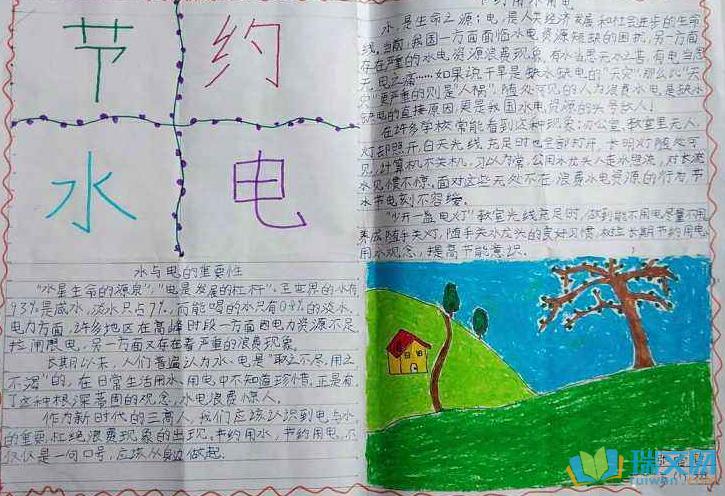 节 约
水 电
水与电的重要性
"水是生命的源泉","电是发展的杠杆"。全世界的水有
93%是咸水,淡水只占7%,而能喝的水只有0.4%的淡水。
电力方面,许多地区在高峰时段一方面因电力资源不足
拉闸限电,另一方面又存在着严重的浪费现象。
长期以来,人们普遍认为水、电是"取之不尽,用之
不竭"的,在日常生活用水、用电中不知道珍惜,正是有
了这种根深蒂固的观念,水电浪费惊人。
作为新时代的三高人,我们应该认识到电与水
的重要,杜绝浪费现象的出现。节约用水,节约用电,不
仅仅是一句口号,应该从身边做起。
节约用水用电
水,是生命之源;电,是人类经济发展和社会进步的生命
线。当前,我国一方面面临水电资源短缺的困扰,另一方面
存在严重的水电资源浪费现象,有水当思无水之苦,有电当思
无电之痛……如果说干旱是缺水缺电的"天灾",那么比"天
灾"更严重的则是"人祸"。随处可见的人为浪费水电,是缺水
缺电的直接原因,更是我国水电资源的头号敌人!
在许多学校常能看到这种现象:办公室、教室里无人,
灯却照开,白天光线充足时也全部打开,长明灯随处可
见,计算机不关机,习以为常,公用水龙头人走水照流,对长流
水见惯不惊。面对这些无处不在浪费水电资源的行为,节
水节电刻不容缓。
"少开一盏电灯"教室光线充足时,做到能不用电尽量不用,
养成随手关灯,随手关水龙头的良好习惯,树立长期节约用电、
用水观念,提高节能意识。
瑞文网
ruiwen.com